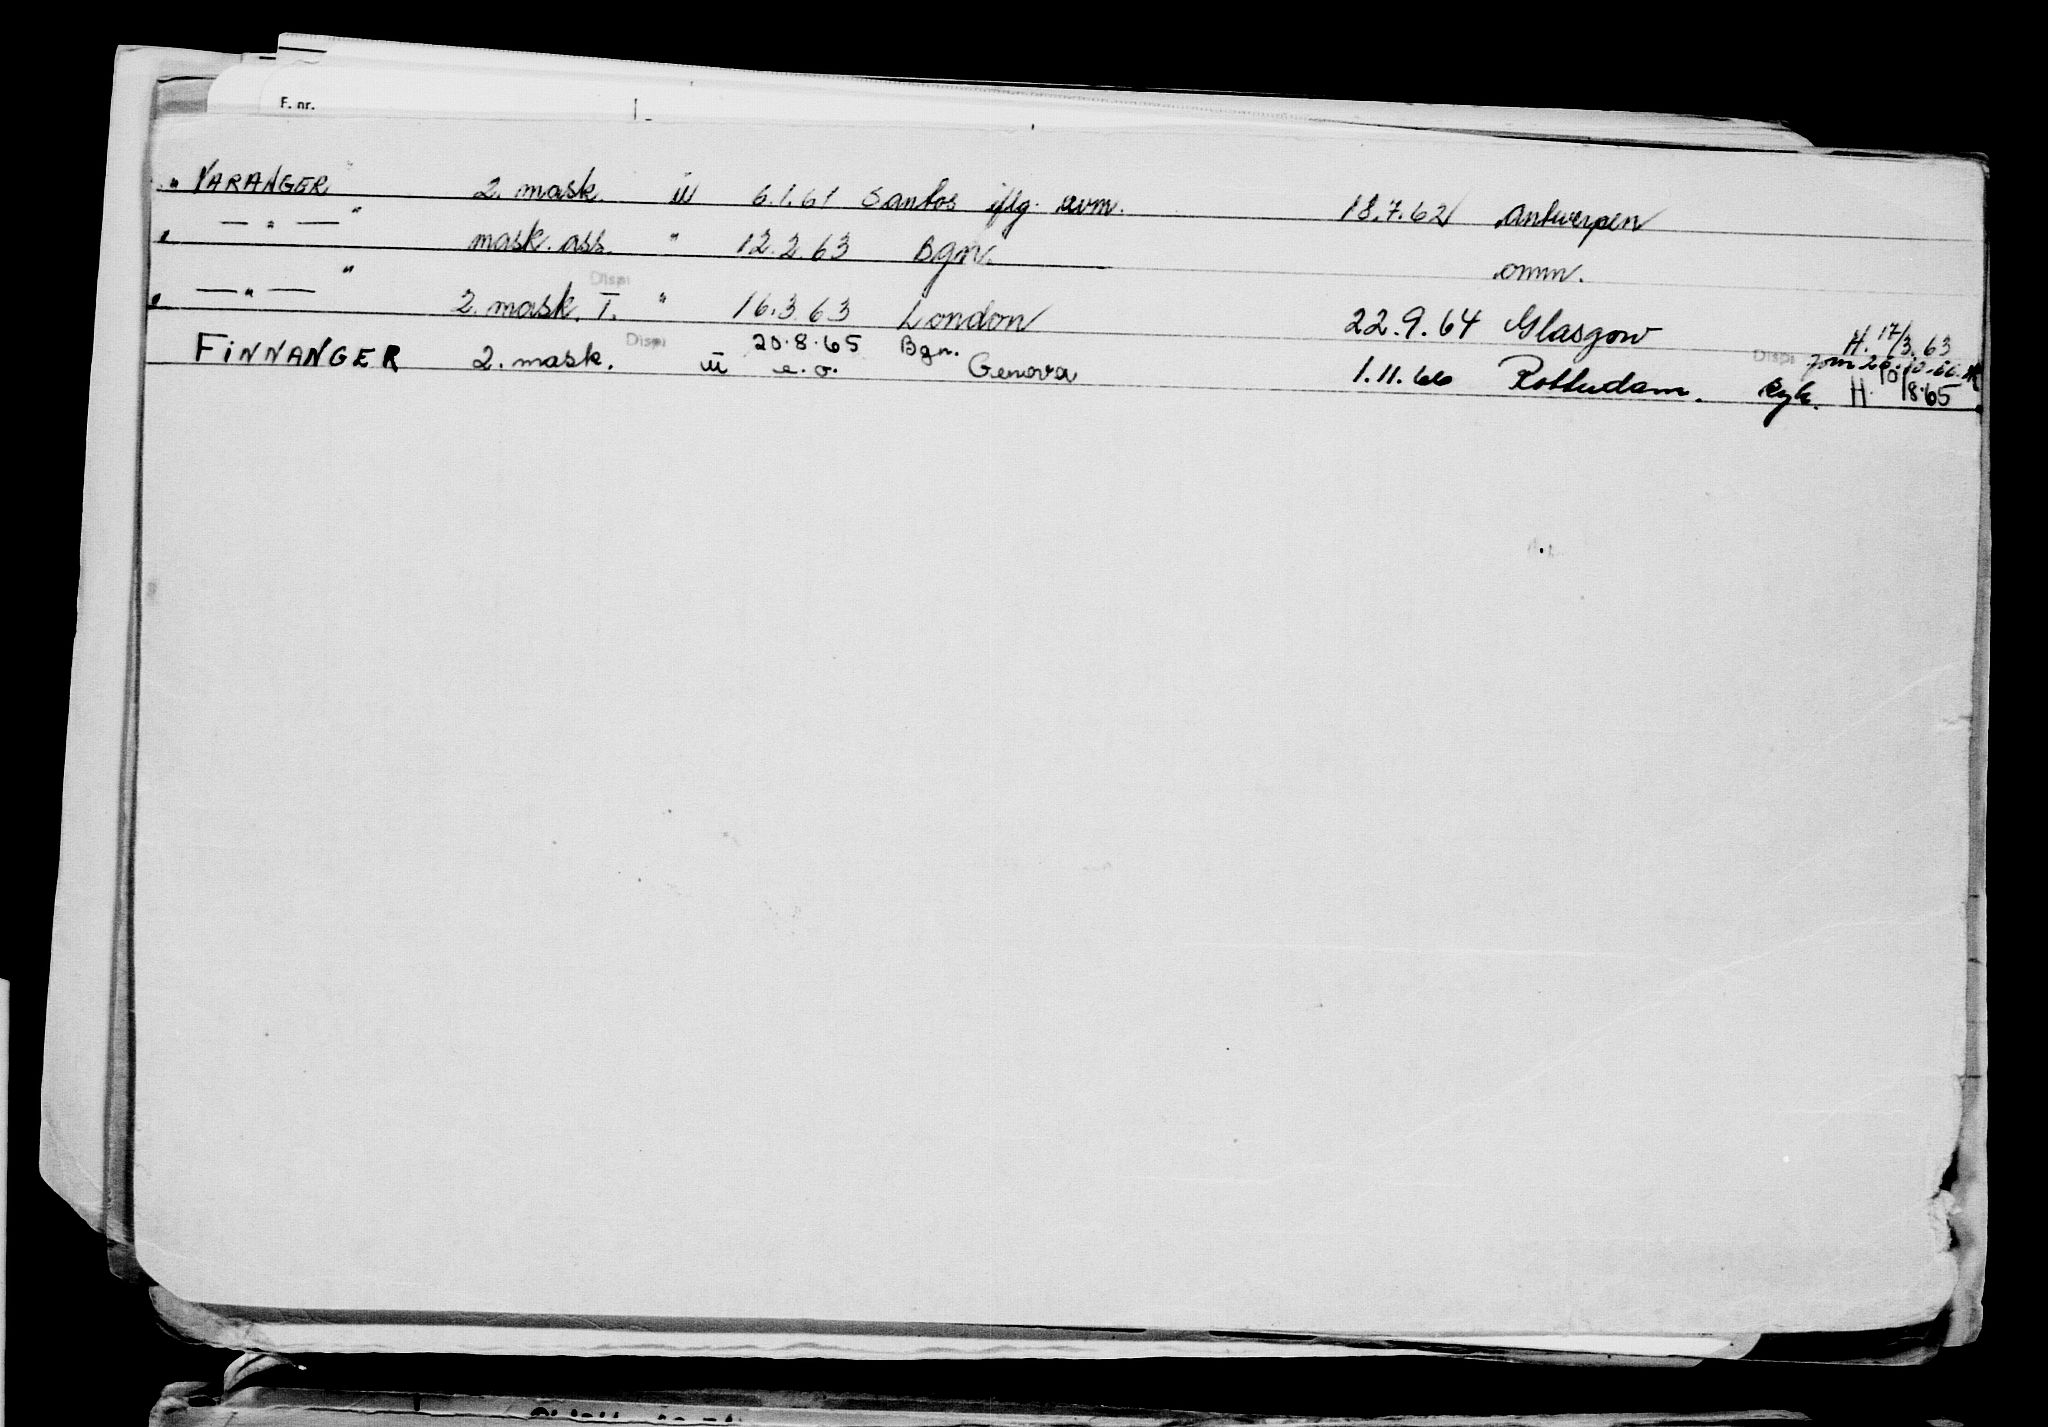 F. nr.
„ VARANGER " 2. mask. III 6.1.61 Santos iflg. avm. 18.7.62 Antwerpen
„ — " — " mask. ass. " 12.2.63 Bgn. omm.
„ — " — " 2. mask. I. Dispi " 16.3.63 London 22.9.64 Glasgow H. 17/3.63
FINNANGER 2. mask. Dispi III 20.8.65 e.o. Bgn. Genova 1.11.66 Rotterdam. Dispi syk. H. 10/8.65